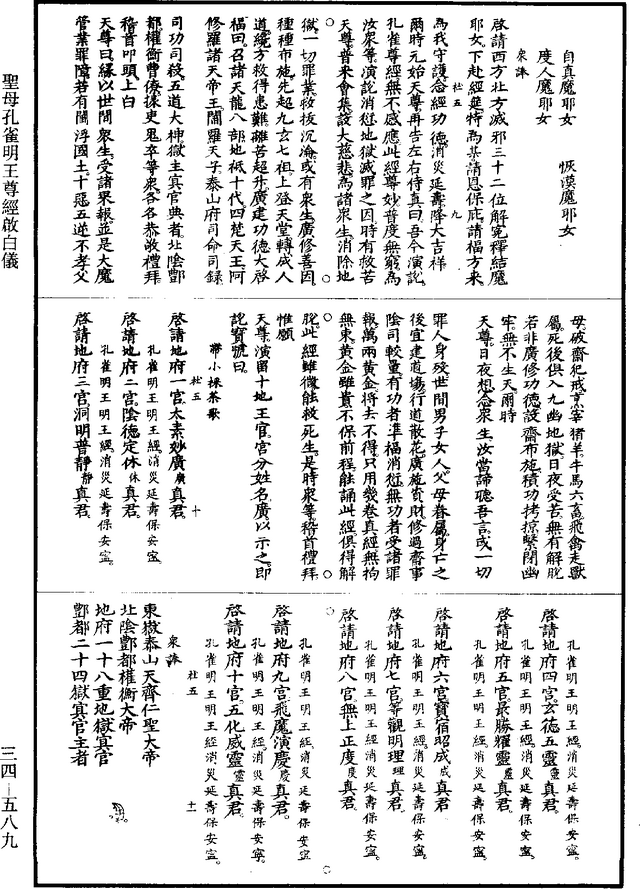 自真魔耶女　　恢漠魔耶女
度人魔耶女
衆諷
啓請西方北方滅邪三十二位解寃釋結魔
耶女。下赴經筵。特為某請恩保庇。請福方來
為我守護。念經功德。消災延壽降大吉祥
社五　九
爾時元始天尊。再告左右侍真曰。吾今演說。
孔雀尊經。無不感應。此經尊妙。普度無窮。為
汝衆等。演說消愆地獄滅罪之因。時有救苦
天尊。普來會集。設大慈悲。為諸衆生。消除地
獄。一切罪業。救拔沉淪。或有衆生。廣修善因。
種種布施。先超九玄七祖。上登天堂。轉成人
道。續方救得患難。離苦超昇。廣建功德。大啓
福田。召諸天龍八部。地祇十代。四梵天王。阿
修羅諸天帝王。閻羅天子。泰山府司命司錄
司功司殺。五道大神。獄主冥官典者。北陰酆
都權衡曹僚掾吏鬼卒等衆。各各恭敬禮拜。
稽首叩頭上白
天尊曰。緣以世間衆生。受諸果報。並是大魔
管業罪障。若有閻浮國土。十惡五逆。不孝父
母。破齋犯戒。烹宰猪羊。牛馬六畜。飛禽走獸
屬。死後俱入九幽地獄。日夜受苦。無有解脫
若非廣修功德。設齋布施。積功拷掠。繫閉幽
牢。無不生天。爾時
天尊。日夜想念衆生。汝當諦聽吾言。或一切
罪人身歿。世間男子女人。父母眷屬。身亡之
後。宜建道場。行道散花。廣施資財。修過齋事
陰司較量。有功者。準福消愆。無功者。受諸罪
報。萬兩黃金將去不得。只用幾卷真經。無拘
無束。黃金雖貴。不保前程。能誦此經。俱得解
脫。此經雖微。能救死生。是時衆等。稽首禮拜
惟願
天尊。演留十地王官。宮分姓名。廣以示之。即
說寶號曰。
帶小採茶歌
啓請地府一宮。太素妙廣廣真君。
社五　十
孔雀明王明王經。消災延壽保安寧。
啓請地府二宮。陰德定休休真君。
孔雀明王明王經。消災延壽保安寧。
啓請地府三宮。洞明普靜靜真君。
孔雀明王明王經。消災延壽保安寧。
啓請地府四宮。玄德五靈靈真君。
孔雀明王明王經。消災延壽保安寧。
啓請地府五宮。最勝耀靈靈真君。
孔雀明王明王經。消災延壽保安寧。
啓請地府六宮。寶宿昭成成真君。
孔雀明王明王經。消災延壽保安寧。
啓請地府七宮。等觀明理理真君。
孔雀明王明王經。消災延壽保安寧。
啓請地府八宮。無上正度度真君。
孔雀明王明王經。消災延壽保安寧。
啓請地府九宮。飛魔演慶慶真君。
孔雀明王明王經。消災延壽保安寧。
啓請地府十宮。五化威靈靈真君。
社五　十一
孔雀明王明王經。消災延壽保安寧。
衆諷
東嶽泰山天齊仁聖大帝
北陰酆都權衡大帝
地府一十八重地獄冥官
酆都二十四獄冥官主者
聖母孔雀明王尊經啟白儀
三四－五八九